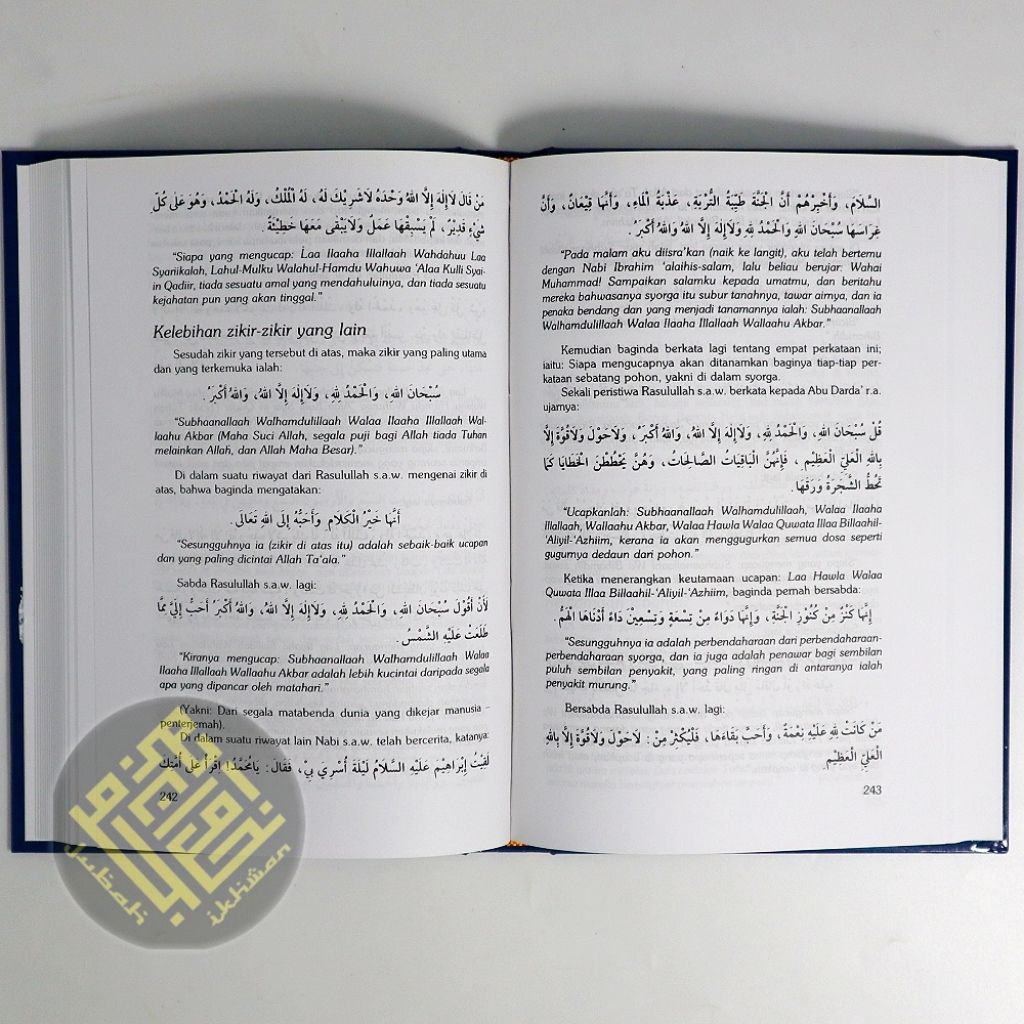 مَنْ قَالَ لَاإِلٰهَ إِلَّا اللهُ وَحْدَهُ لَاشَرِيْكَ لَهُ، لَهُ الْمُلْكُ، وَلَهُ الْحَمْدُ، وَهُوَ عَلَى كُلِّ
شَيْءٍ قَدِيْرٌ، لَمْ يَسْبِقْهَا عَمَلٌ وَلَايَبْقَى مَعَهَا خَطِيْئَةٌ.
“Siapa yang mengucap: Laa Ilaaha Illallaah Wahdahuu Laa
Syariikalah, Lahul-Mulku Walahul-Hamdu Wahuwa ‘Alaa Kulli Syai-
in Qadiir, tiada sesuatu amal yang mendahuluinya, dan tiada sesuatu
kejahatan pun yang akan tinggal.”
Kelebihan zikir-zikir yang lain
Sesudah zikir yang tersebut di atas, maka zikir yang paling utama
dan yang terkemuka ialah:
سُبْحَانَ اللهِ، وَالْحَمْدُ لِلّٰهِ، وَلَاإِلٰهَ إِلَّا اللهُ، وَاللهُ أَكْبَرُ.
“Subhaanallaah Walhamdulillaah Walaa Ilaaha Illallaah Wal-
laahu Akbar (Maha Suci Allah, segala puji bagi Allah tiada Tuhan
melainkan Allah, dan Allah Maha Besar).”
Di dalam suatu riwayat dari Rasulullah s.a.w. mengenai zikir di
atas, bahwa baginda mengatakan:
أَنَّهَا خَيْرُ الْكَلَامِ وَأَحَبُّهُ إِلَى اللهِ تَعَالَى.
“Sesungguhnya ia (zikir di atas itu) adalah sebaik-baik ucapan
dan yang paling dicintai Allah Ta‘ala.”
Sabda Rasulullah s.a.w. lagi:
لَأَنْ أَقُوْلَ سُبْحَانَ اللهِ، وَالْحَمْدُ لِلّٰهِ، وَلَاإِلٰهَ إِلَّا اللهُ، وَاللهُ أَكْبَرُ أَحَبُّ إِلَيَّ مِمَّا
طَلَعَتْ عَلَيْهِ الشَّمْسُ.
“Kiranya mengucap: Subhaanallaah Walhamdulillaah Walaa
Ilaaha Illallaah Wallaahu Akbar adalah lebih kucintai daripada segala
apa yang dipancar oleh matahari.”
(Yakni: Dari segala matabenda dunia yang dikejar manusia –
penterjemah).
Di dalam suatu riwayat lain Nabi s.a.w. telah bercerita, katanya:
لَقِيْتُ إِبْرَاهِيْمَ عَلَيْهِ السَّلَامُ لَيْلَةَ أُسْرِيَ بِيْ، فَقَالَ: يَامُحَمَّدُ! اِقْرَأْ عَلَى أُمَّتِكَ
242
السَّلَامَ، وَأَخْبِرْهُمْ أَنَّ الْجَنَّةَ طَيِّبَةُ التُّرْبَةِ، عَذْبَةُ الْمَاءِ، وَأَنَّهَا قِيْعَانٌ، وَأَنَّ
غِرَاسَهَا سُبْحَانَ اللهِ وَالْحَمْدُ لِلّٰهِ وَلَاإِلٰهَ إِلَّا اللهُ وَاللهُ أَكْبَرُ.
“Pada malam aku diisra’kan (naik ke langit), aku telah bertemu
dengan Nabi Ibrahim ‘alaihis-salam, lalu beliau berujar: Wahai
Muhammad! Sampaikan salamku kepada umatmu, dan beritahu
mereka bahwasanya syorga itu subur tanahnya, tawar airnya, dan ia
penaka bendang dan yang menjadi tanamannya ialah: Subhaanallaah
Walhamdulillaah Walaa Ilaaha Illallaah Wallaahu Akbar.”
Kemudian baginda berkata lagi tentang empat perkataan ini;
iaitu: Siapa mengucapnya akan ditanamkan baginya tiap-tiap per-
kataan sebatang pohon, yakni di dalam syorga.
Sekali peristiwa Rasulullah s.a.w. berkata kepada Abu Darda’ r.a.
ujarnya:
قُلْ سُبْحَانَ اللهِ، وَالْحَمْدُ لِلّٰهِ، وَلَاإِلٰهَ إِلَّا اللهُ، وَاللهُ أَكْبَرُ، وَلَاحَوْلَ وَلَاقُوَّةَ إِلَّا
بِاللهِ الْعَلِيِّ الْعَظِيْمِ، فَإِنَّهُنَّ الْبَاقِيَاتُ الصَّالِحَاتُ، وَهُنَّ يَحْطُطْنَ الْخَطَايَا كَمَا
تَحُطُّ الشَّجَرَةُ وَرَقَهَا.
“Ucapkanlah: Subhaanallaah Walhamdulillaah, Walaa Ilaaha
Illallaah, Wallaahu Akbar, Walaa Hawla Walaa Quwata Illaa Billaahil-
‘Aliyil-‘Azhiim, kerana ia akan menggugurkan semua dosa seperti
gugurnya dedaun dari pohon.”
Ketika menerangkan keutamaan ucapan: Laa Hawla Walaa
Quwata Illaa Billaahil-‘Aliyil-‘Azhiim, baginda pernah bersabda:
إِنَّهَا كَنْزٌ مِنْ كُنُوْزِ الْجَنَّةِ، وَإِنَّهَا دَوَاءٌ مِنْ تِسْعَةٍ وَتِسْعِيْنَ دَاءً أَدْنَاهَا الْهَمُّ.
“Sesungguhnya ia adalah perbendaharaan dari perbendaharaan-
perbendaharaan syorga, dan ia juga adalah penawar bagi sembilan
puluh sembilan penyakit, yang paling ringan di antaranya ialah
penyakit murung.”
Bersabda Rasulullah s.a.w. lagi:
مَنْ كَانَتْ لِلّٰهِ عَلَيْهِ نِعْمَةٌ، وَأَحَبَّ بَقَاءَهَا، فَلْيُكْثِرْ مِنْ: لَاحَوْلَ وَلَاقُوَّةَ إِلَّا بِاللهِ
الْعَلِيِّ الْعَظِيْمِ.
243
Jubah ikhwan